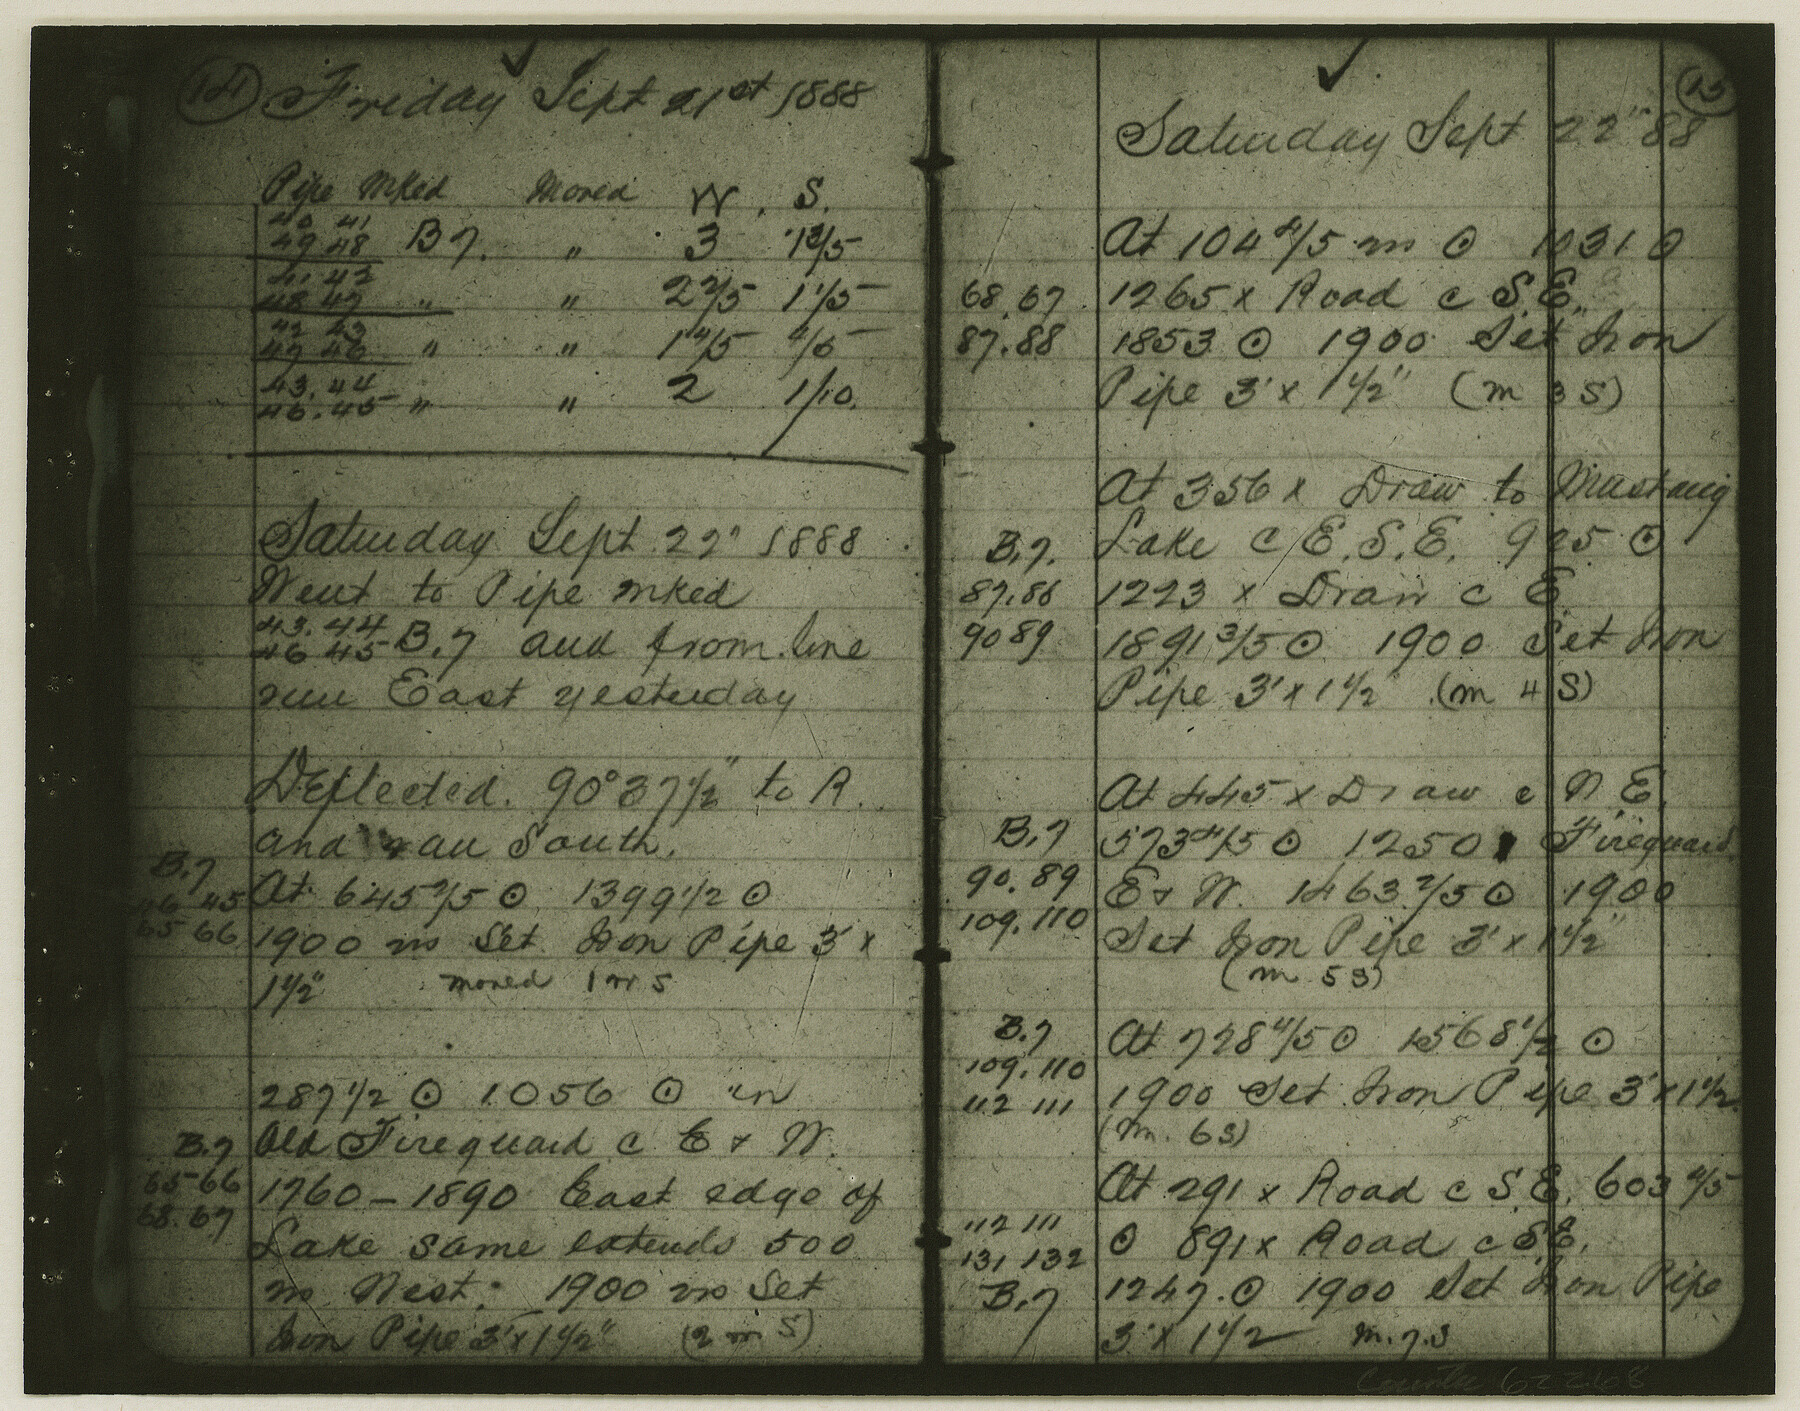 14
Friday Sept 21st 1888
Pipe Mked Moved W. S.
40 41
49 48 B 7. " 3 1 3/5
41 42
48 47 " " 2 2/5 1 1/5
42 43
47 46 " " 1 4/5 4/5
43.44
46.45 " " 2 1/10.
Saturday Sept. 22" 1888
Went to Pipe mked
43.44
46 45 B.7 and from line
run East yesterday
Deflected. 90°37 1/2" to R.
and ran South.
B.7
46 45 At 645 2/5 ⊙ 1399 1/2 ⊙
65 66 1900 vs Set Iron Pipe 3' x
1 1/2" moved 1 vr S
287 1/2 ⊙ 1056 ⊙ in
B.7 Old Fireguard c E & W.
65-66 1760 – 1890 East edge of
68.67
Lake same extends 500
vs West. 1900 vs Set
Iron Pipe 3' x 1 1/2" (2 m S)
15
Saturday Sept 22" 88
At 104 4/5 vs ⊙ 1031 ⊙
68.67 1265 x Road c S.E.
87.88 1853 ⊙ 1900 Set Iron
Pipe 3' x 1 1/2" (m 3 S)
At 356 x Draw to Mustang
B.7. Lake c E.S.E. 925 ⊙
87.86 1223 x Draw c E
90 89 1891 3/5 ⊙ 1900 Set Iron
Pipe 3' x 1 1/2" (m 4 S)
At 445 x Draw c N.E.
B.7 573 4/5 ⊙ 1250 Fireguard
90.89 E & W. 1463 2/5 ⊙ 1900
109.110 Set Iron Pipe 3' x 1 1/2"
(m 5 S)
B.7 At 728 4/5 ⊙ 1568 1/2 ⊙
109.110
112 111 1900 Set Iron Pipe 3' x 1 1/2
(m. 6 S)
At 291 x Road c S.E. 603 4/5
112 111 ⊙ 891 x Road c S.E.
131 132
B.7 1247. ⊙ 1900 Set Iron Pipe
3' x 1 1/2 m. 7. S
Counter 62268